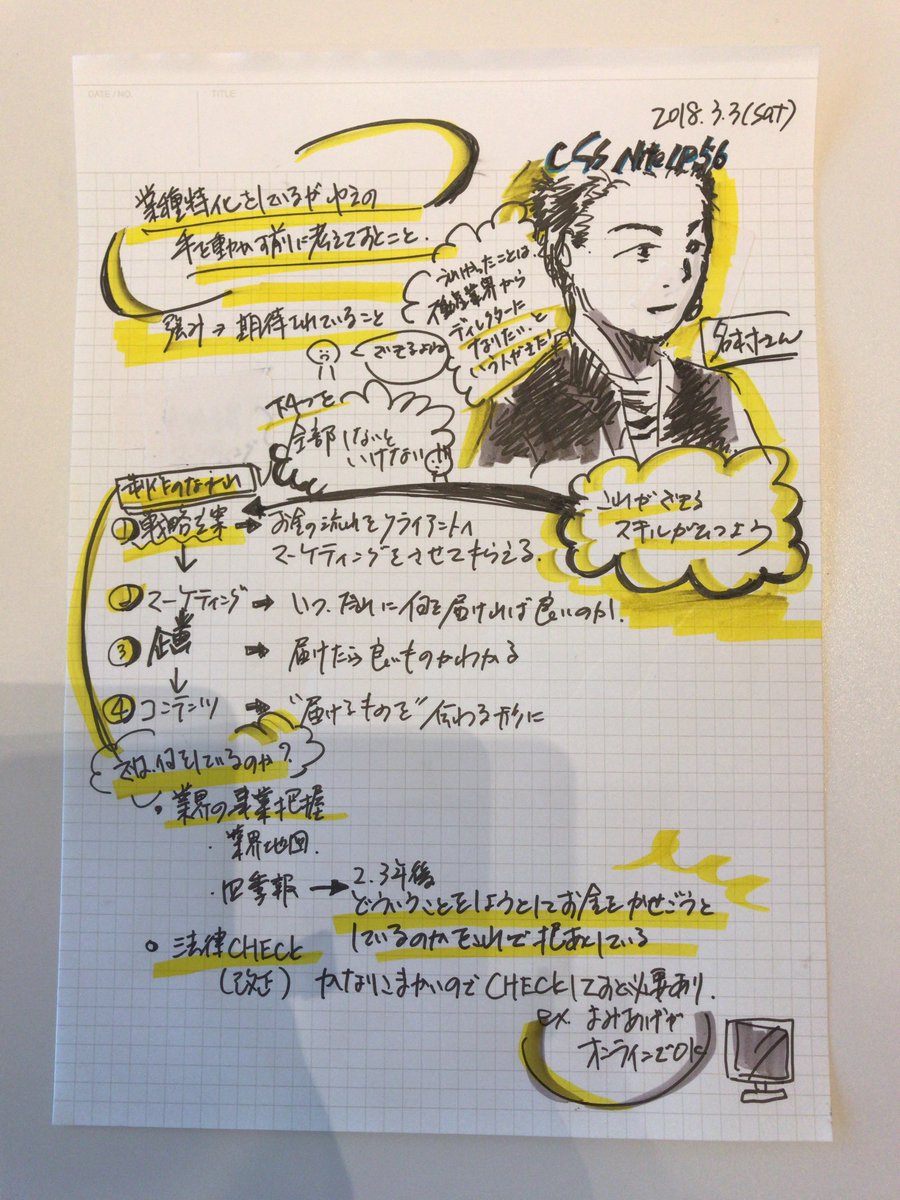 DATE / NO.
TITLE
2018.3.3(sat)
CSS Nite LP56
業種特化をしているがゆえの
手を動かす前に考えておくこと.
強み→期待されていること
うれしかったことは、
不動産業界から
ディレクターに
なりたい、と
いう人がきた!
名村さん
できるよね
下4つを
全部しないと
いけない
制作のながれ
これができる
スキルがひつよう
①戦略立案→お金の流れをクライアント
マーケティングをさせてもらえる.
②マーケティング→いつ、だれに何を届ければ良いのか!
③企画→届けたら良いものかわかる
④コンテンツ→"届けるものを"伝わる形に
では、何をしているのか?
・業界の事業把握
・業界地図.
・四季報→2.3年後
どういうことをしようとしてお金をかせごうと
しているのかをこれで把あくしている
・法律CHECK
(改正)かなりこまかいのでCHECKしておく必要あり.
ex.
オンラインでOK